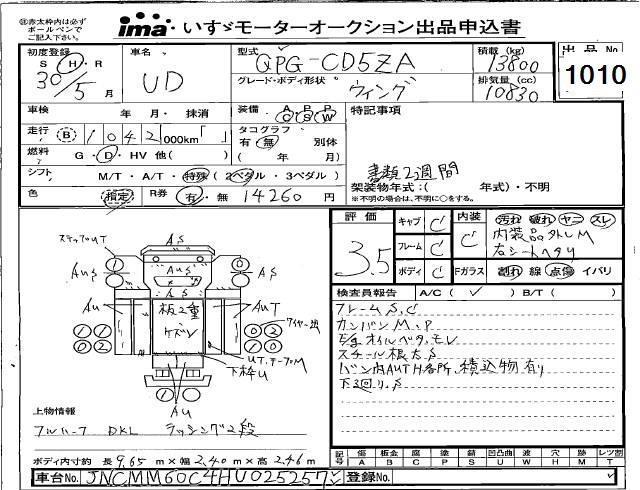 ㊟赤太枠内は必ず
ボールペンで
ご記入下さい。
ima・いすゞモーターオークション出品申込書
初度登録 S H・R 30/5月
車名 UD
型式 QPG-CD5ZA
グレード・ボディ形状 ウィング
積載 (kg) 13800
排気量 (cc) 10830
出品No 1010
車検 年 月・ 抹消
装備 A P P C S W
特記事項
走行 B 1042 000km「 」
タコグラフ 有 無 別体
( 年 月)
燃料 G・D・HV 他( )
書類2週間
シフト M/T・A/T・特殊( 2ペダル・3ペダル)
架装物年式:( 年式)・不明
※不明の場合は、不明に○をする。
色 指定 R券 有・無 14260 円
評価 3.5
キャブ C
フレーム C
ボディ C
内装 C
Fガラス
汚れ 破れ ヤニ スレ
内装品外しM
右シートヘタリ
割れ 線 点傷 イバリ
検査員報告 A/C( ✓ ) B/T( )
フレームS,C
カンバンM.P
E/gオイルベタ.モレ
スチール根太S
バン内AUTH各所、積込物有り
下3回り.S
ステップUT AS
AuS AuS AS
AS
Au AuT
板2重
ケズレ
ワイヤー出
UT.テープM
下枠U
Au
上物情報
フルハーフ DKL ラッシング2段
ボディ内寸約 長 9.65 m×巾 2.40 m×高 2.46 m
記号 傷 A 板金 B 腐 C 塗 P 錆 S 凹 U 凹凸曲 W 波 穴 H 跡 M レツ割 T
車台No. JNCMM60C4HU025257 登録No.